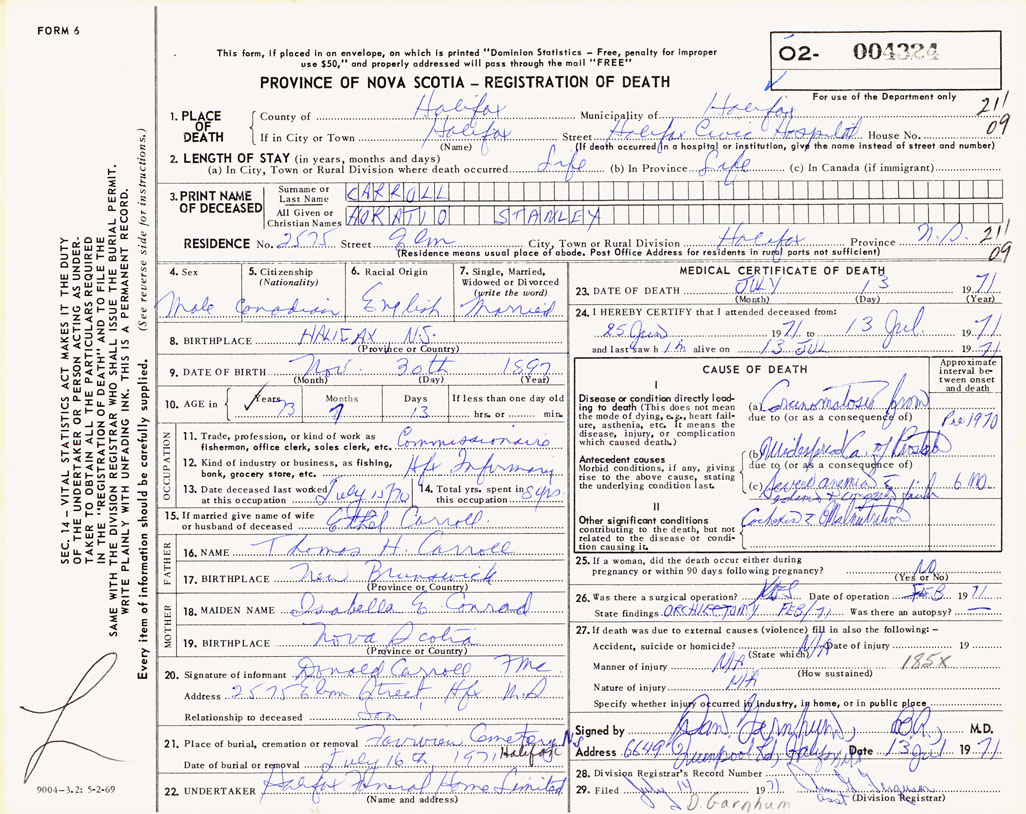 FORM 6
This form, if placed in an envelope, on which is printed "Dominion Statistics – Free, penalty for improper
use $50," and properly addressed will pass through the mail "FREE"
02- 004324
For use of the Department only
PROVINCE OF NOVA SCOTIA – REGISTRATION OF DEATH
1. PLACE OF DEATH
County of Halifax Municipality of Halifax 211
If in City or Town Halifax Street Halifax Civic Hospital House No. 09
(Name) (If death occurred in a hospital or institution, give the name instead of street and number)
2. LENGTH OF STAY (in years, months and days)
(a) In City, Town or Rural Division where death occurred Life (b) In Province Life (c) In Canada (if immigrant)
3. PRINT NAME OF DECEASED
Surname or Last Name CARROLL
All Given or Christian Names HORATIO STANLEY
RESIDENCE No. 2575 Street Elm City, Town or Rural Division Halifax Province N.S. 211
(Residence means usual place of abode. Post Office Address for residents in rural parts not sufficient) 09
4. Sex Male
5. Citizenship (Nationality) Canadian
6. Racial Origin English
7. Single, Married, Widowed or Divorced (write the word) Married
8. BIRTHPLACE HALIFAX N.S.
(Province or Country)
9. DATE OF BIRTH Nov. 30th 1897
(Month) (Day) (Year)
10. AGE in Years 73 Months 7 Days 13 If less than one day old
hrs. or min.
OCCUPATION
11. Trade, profession, or kind of work as
fisherman, office clerk, sales clerk, etc. Commissionaire
12. Kind of industry or business, as fishing,
bank, grocery store, etc. Hfx Infirmary
13. Date deceased last worked at this occupation July 15/70
14. Total yrs. spent in this occupation 5 yrs
15. If married give name of wife
or husband of deceased Ethel Carroll
FATHER
16. NAME Thomas H. Carroll
17. BIRTHPLACE New Brunswick
(Province or Country)
MOTHER
18. MAIDEN NAME Isabella E Conrad
19. BIRTHPLACE Nova Scotia
(Province or Country)
20. Signature of informant Donald Carroll
Address 2575 Elm Street, Hfx N.S
Relationship to deceased Son
21. Place of burial, cremation or removal Fairview Cemetery NS
Halifax
Date of burial or removal July 16th, 1971
22. UNDERTAKER Halifax Funeral Home Limited
(Name and address)
MEDICAL CERTIFICATE OF DEATH
23. DATE OF DEATH JULY 13 1971
(Month) (Day) (Year)
24. I HEREBY CERTIFY that I attended deceased from:
25 Jun 1971 to 13 Jul 1971
and last saw him alive on 13 JUL 1971
CAUSE OF DEATH
Approximate interval between onset and death
I
Disease or condition directly leading to death (This does not mean the mode of dying, e.g., heart failure, asthenia, etc. It means the disease, injury, or complication which caused death.)
(a) Carcinomatosis from
due to (or as a consequence of) Pre 1970
Antecedent causes
Morbid conditions, if any, giving rise to the above cause, stating the underlying condition last.
(b) Widespread Ca. of Prostate
due to (or as a consequence of)
(c) Severe anemia 6 mo.
II
Other significant conditions contributing to the death, but not related to the disease or condition causing it.
Cachexia & Malnutrition
25. If a woman, did the death occur either during
pregnancy or within 90 days following pregnancy? NO
(Yes or No)
26. Was there a surgical operation? YES Date of operation FEB 1971
State findings ORCHIECTOMY FEB/71 Was there an autopsy? —
27. If death was due to external causes (violence) fill in also the following: –
Accident, suicide or homicide? N/A Date of injury 19
(State which)
Manner of injury N/A 185X
(How sustained)
Nature of injury N/A
Specify whether injury occurred in industry, in home, or in public place
Signed by Dan Garnhum M.D.
Address 6649 Quinpool Rd, Halifax, NS Date 13 Jul 1971
28. Division Registrar's Record Number
29. Filed July 14 1971 Ferguson
asst (Division Registrar)
D. Garnhum
SEC. 14 – VITAL STATISTICS ACT MAKES IT THE DUTY
OF THE UNDERTAKER OR PERSON ACTING AS UNDER-
TAKER TO OBTAIN ALL THE PARTICULARS REQUIRED
IN THE "REGISTRATION OF DEATH" AND TO FILE THE
SAME WITH THE DIVISION REGISTRAR WHO SHALL ISSUE THE BURIAL PERMIT.
WRITE PLAINLY WITH UNFADING INK. THIS IS A PERMANENT RECORD.
Every item of information should be carefully supplied. (See reverse side for instructions.)
9004-3.2: 5-2-69